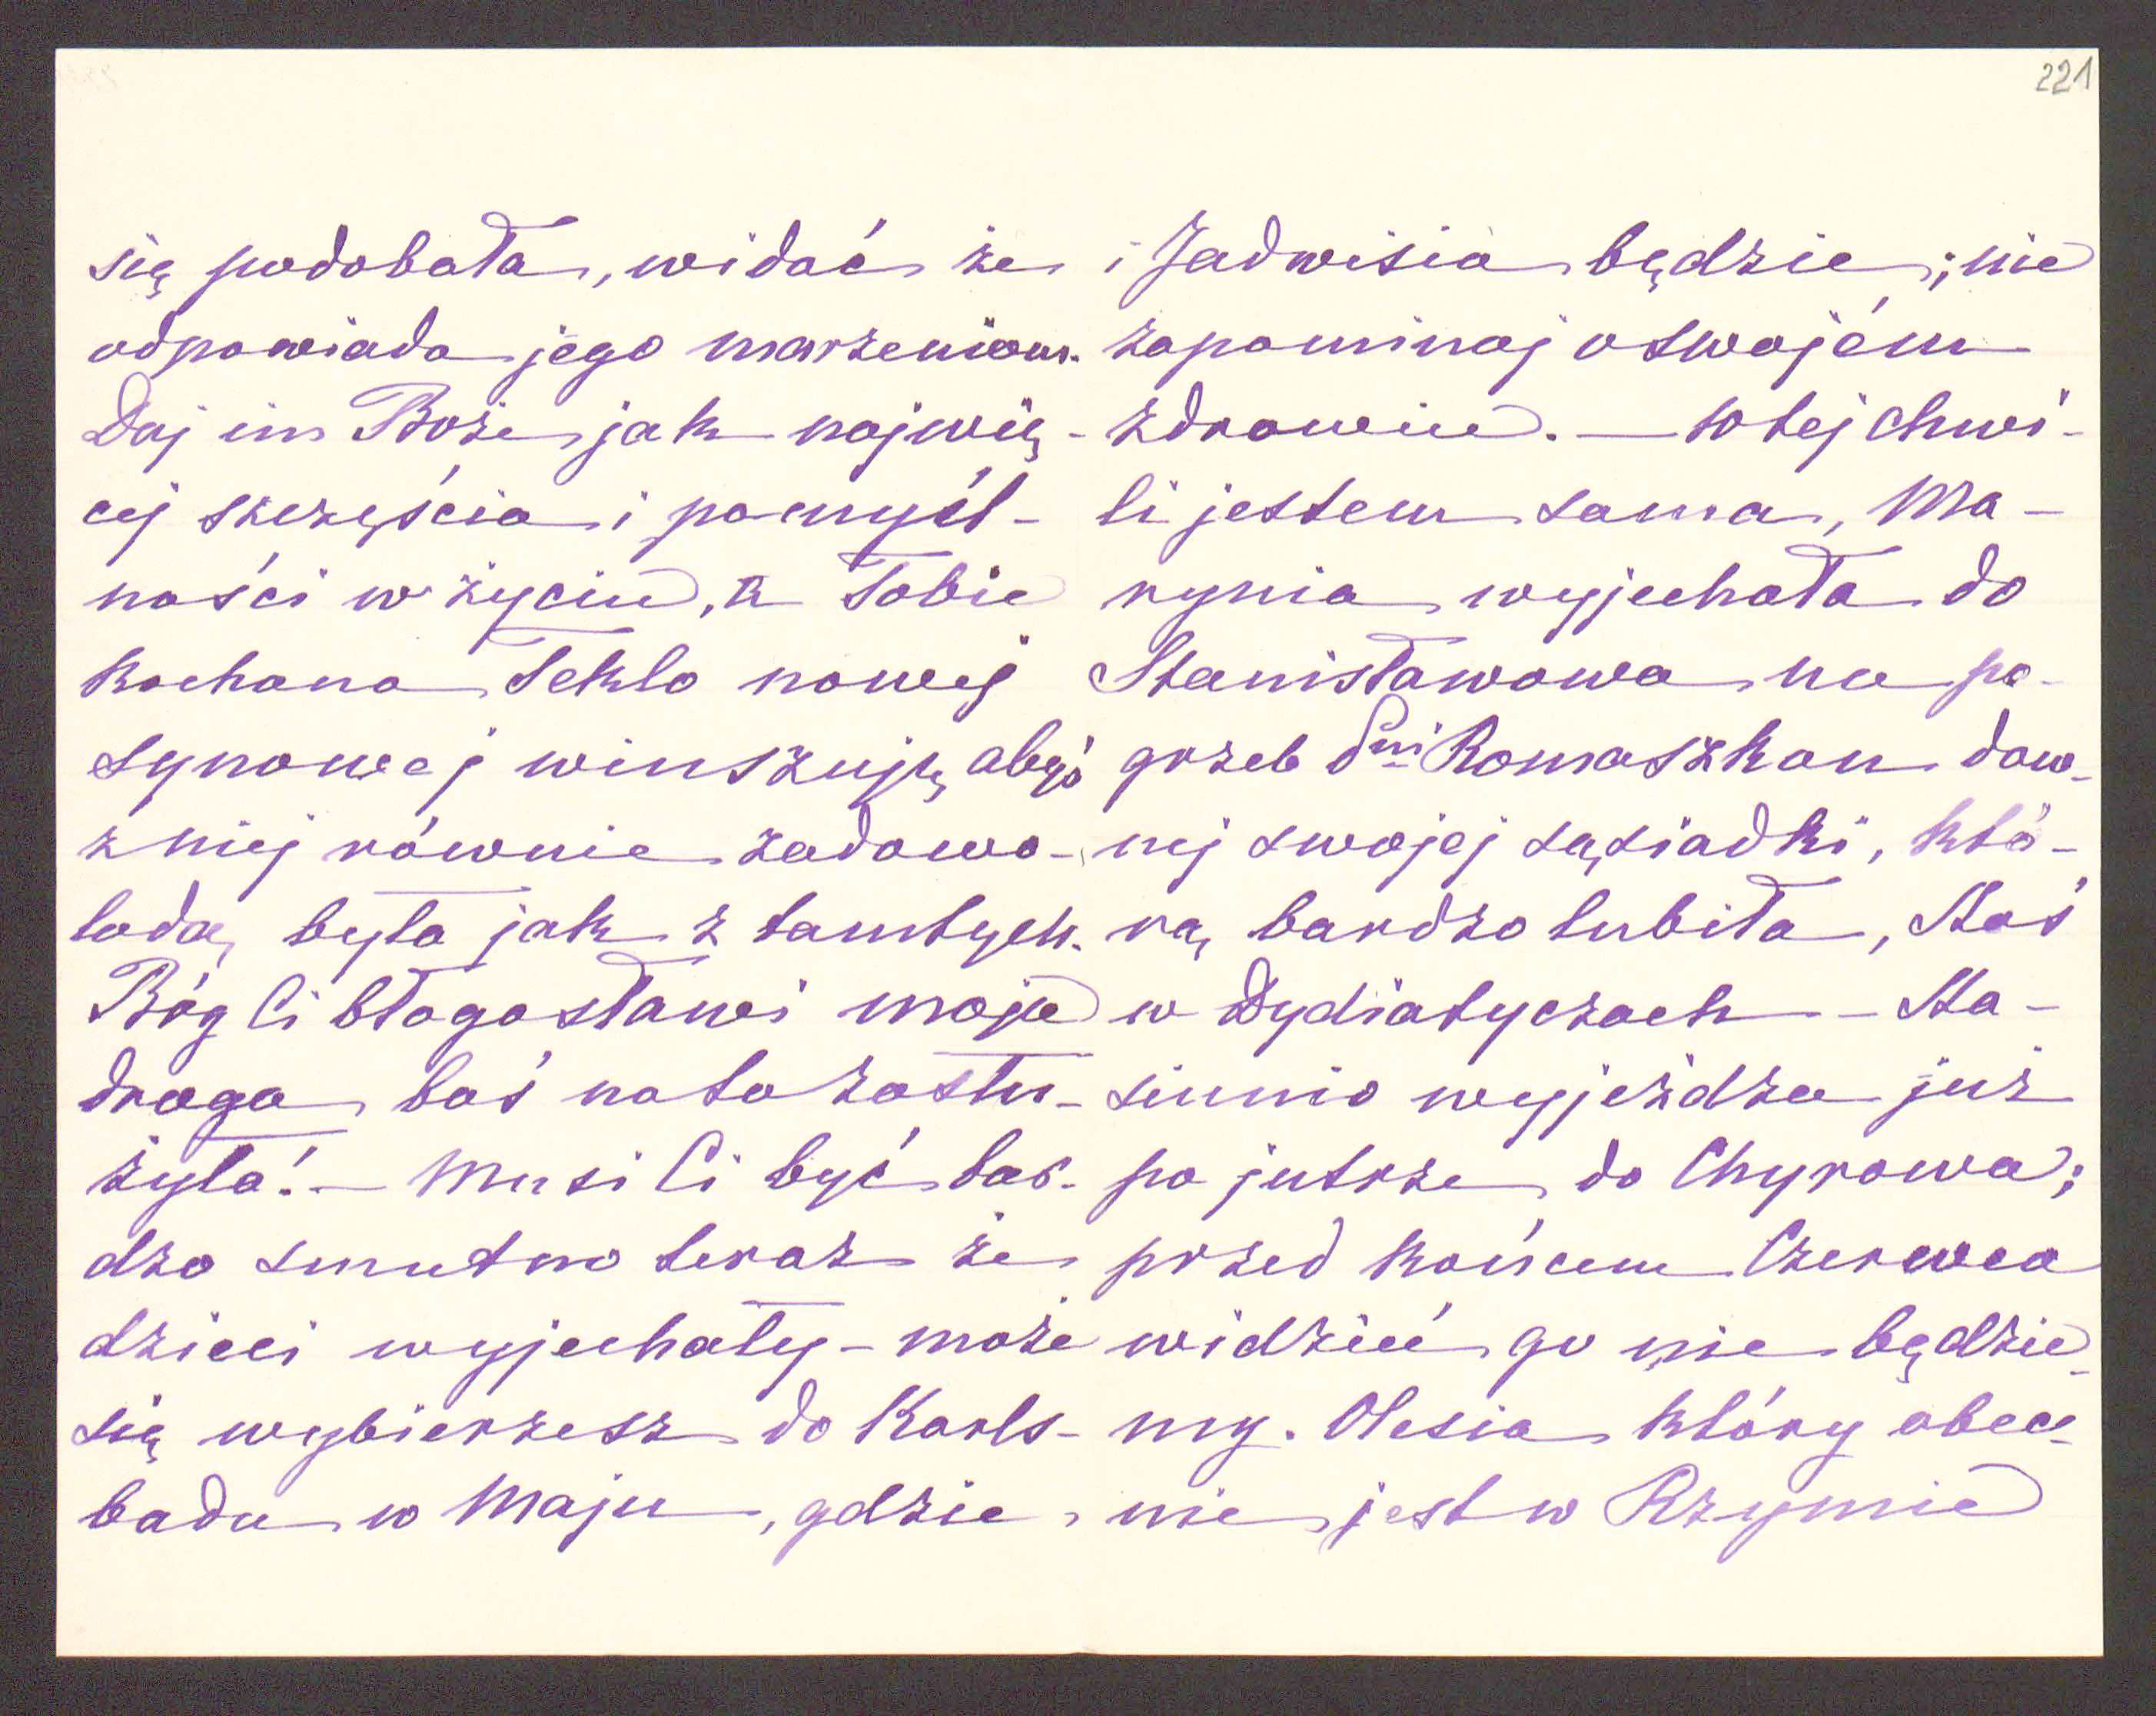 221
się podobała, widać że
odpowiada jego marzeniom.
Daj im Boże jak najwię-
cej szczęścia i pomyśl-
ności w życiu, a Tobie
kochana Teklo nowej
synowej winszuję, abyś
z niej równie zadowo-
loda, była jak z tamtych.
Bóg Ci błogosławi moja
droga boś na to zasłu-
żyła! – Musi Ci być bar-
dzo smutno teraz że
dzieci wyjechały – może
się wybierzesz do Karls-
badu w Maju, gdzie
i Jadwisia będzie; nie
zapominaj o swojém
zdrowiu. – W tej chwi-
li jestem sama, Ma-
rynia wyjechała do
Stanisławowa na po-
grzeb Pni Romaszkan daw-
nej swojej sąsiadki, któ-
rą bardzo lubiła, Staś
w Dydiatyczach – Sta-
siunio wyjeżdża już
po jutrze do Chyrowa;
przed końcem Czerwca
widzieć go nie będzie-
my. Olesia który obec-
nie jest w Rzymie